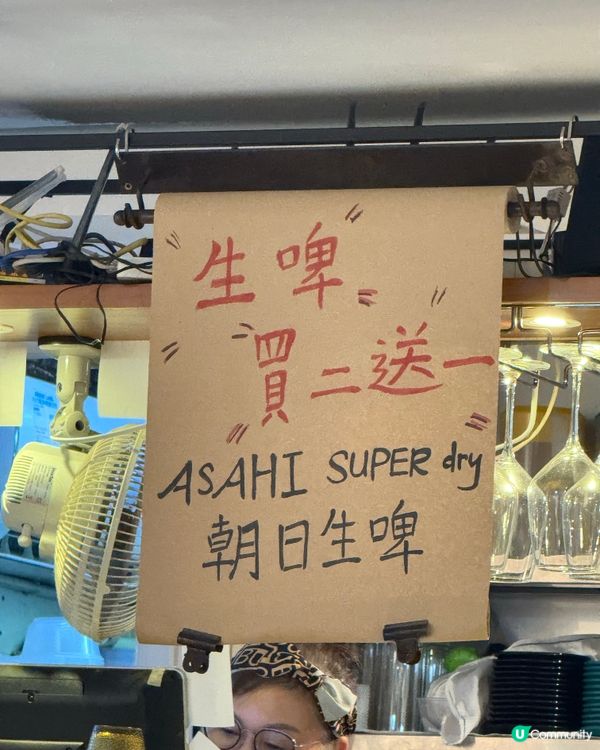 生啤
買二送一
ASAHI SUPER dry
朝日生啤
U Community